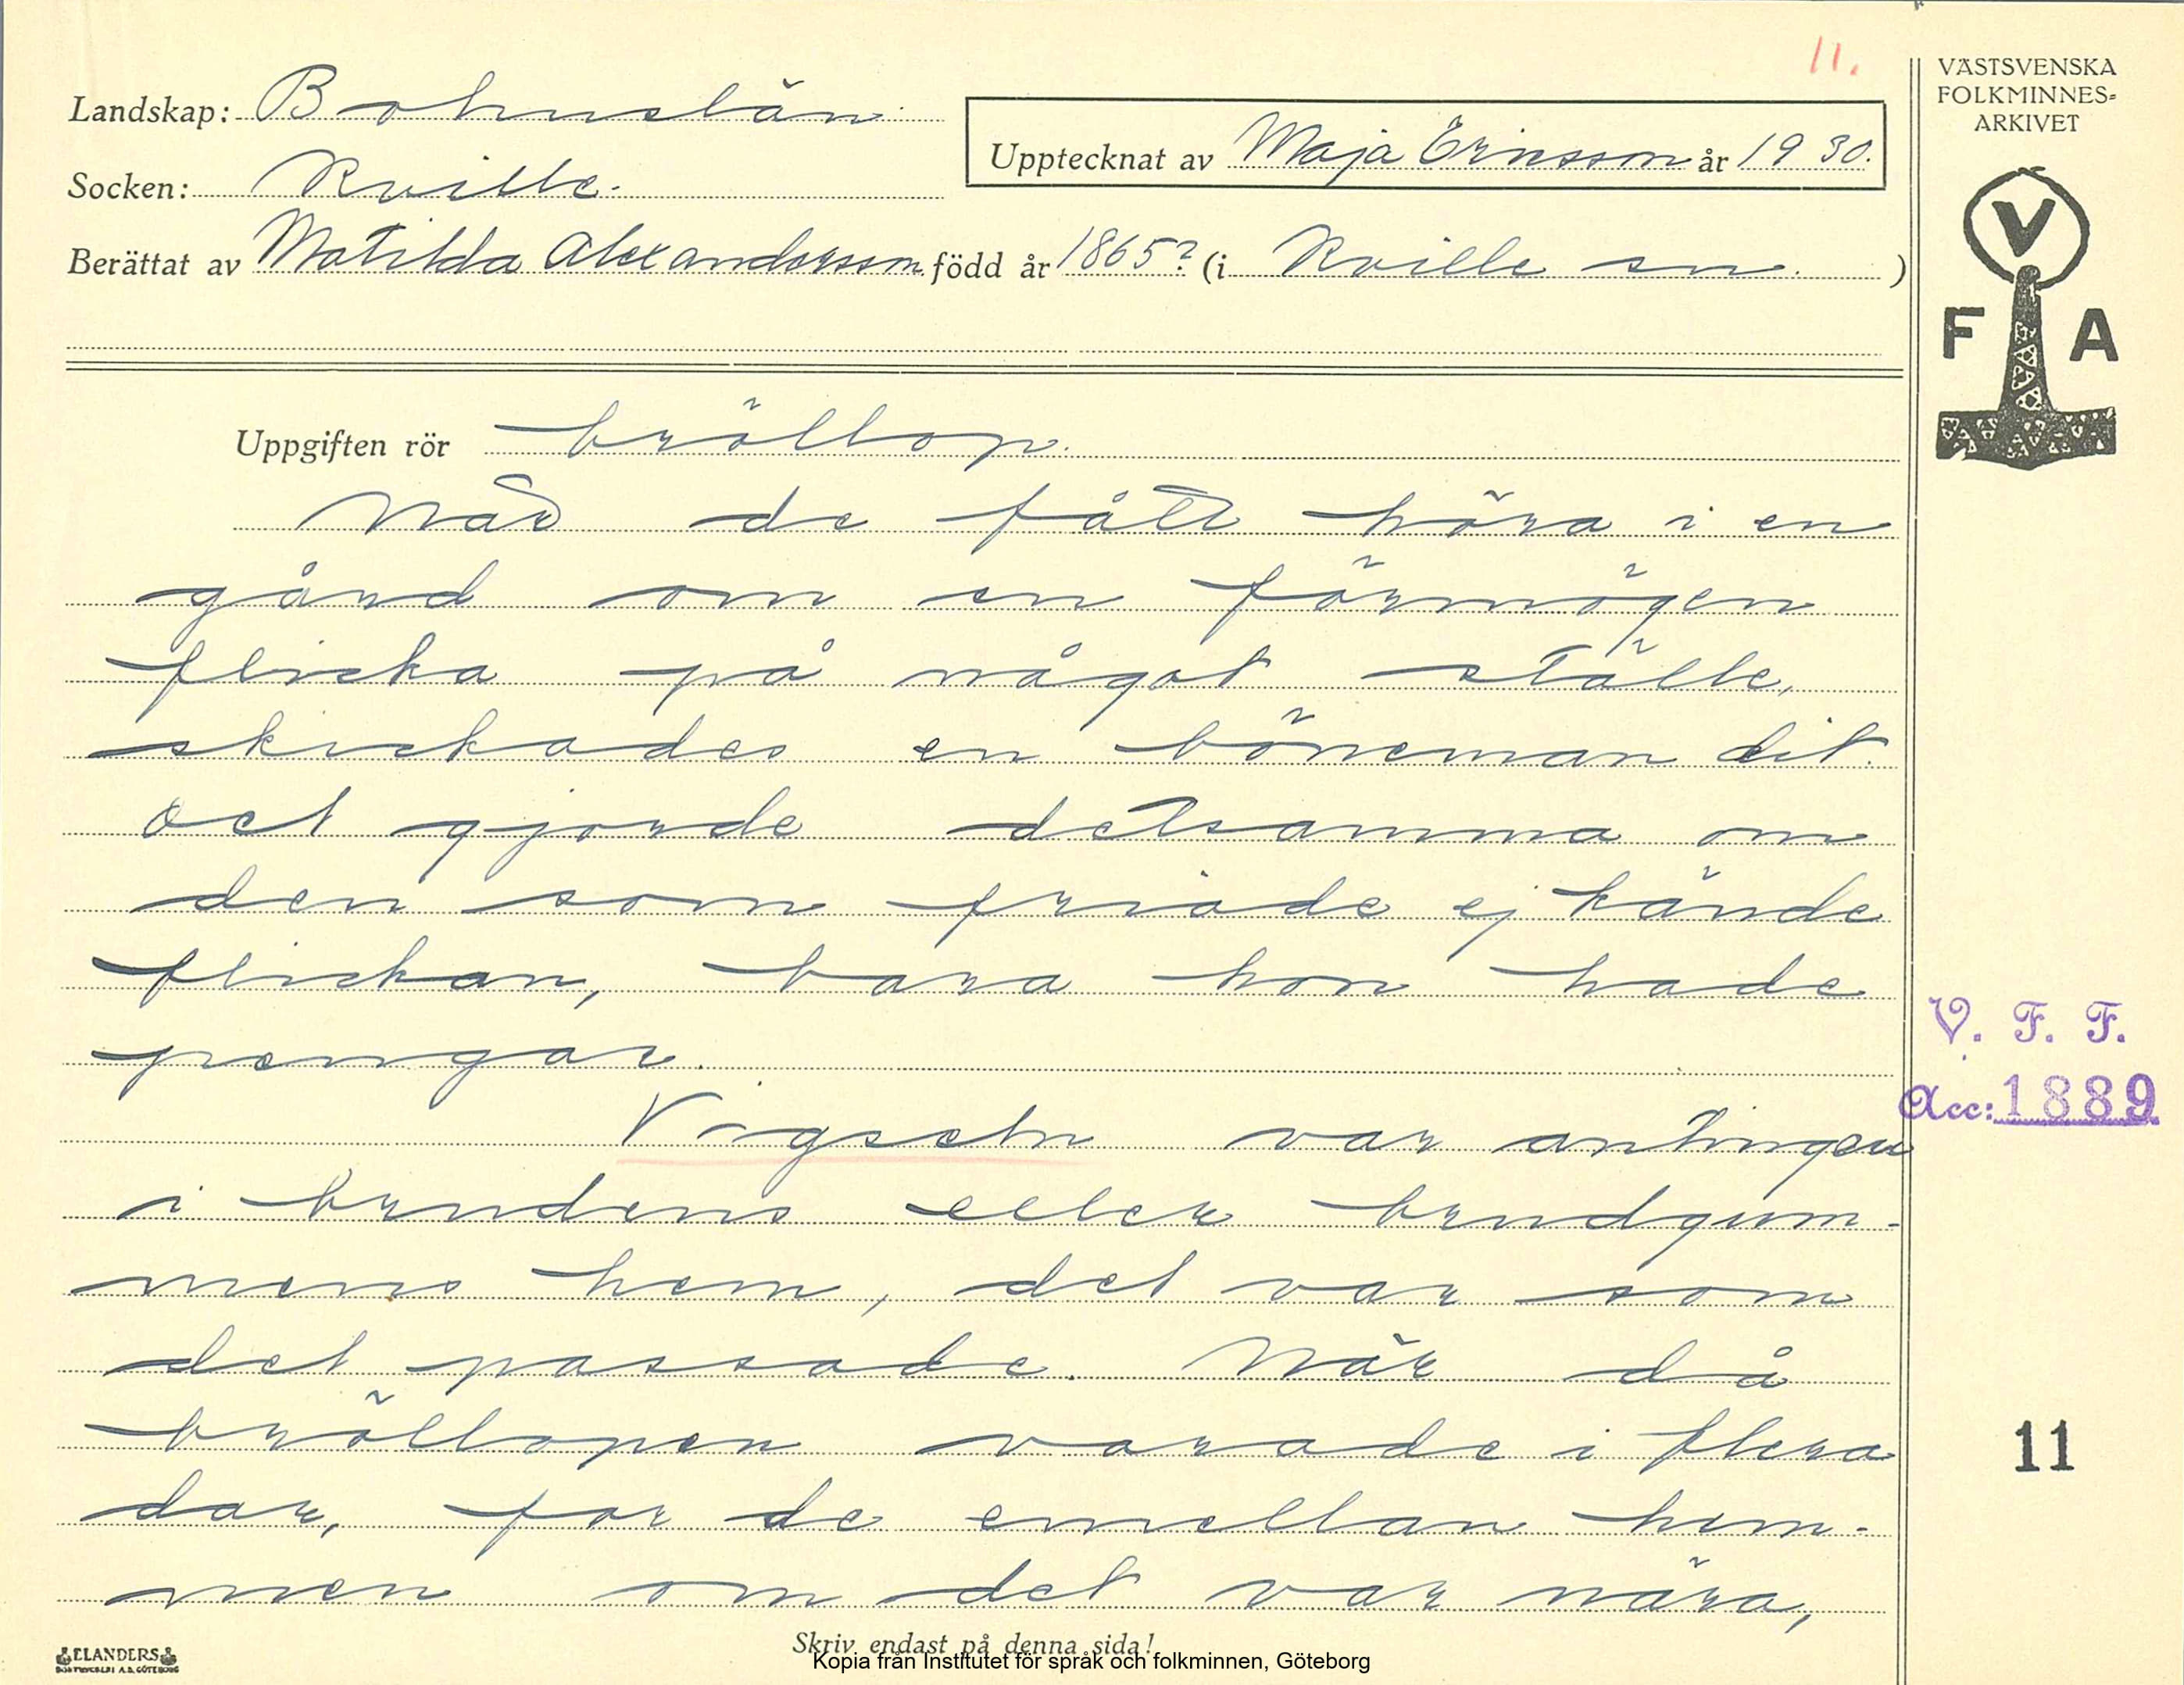 11.
VÄSTSVENSKA
FOLKMINNES=
ARKIVET
Landskap: Bohuslän
Upptecknat av Maja Ericsson år 1930.
Socken: Kville.
Berättat av Matilda Alexandersson född år 1865? (i Kville sn. )
V
F A
Uppgiften rör bröllop.
När de fått höra i en
gård om en förmögen
flicka på något ställe,
skickades en böneman dit.
Det gjorde detsamma om
den som friade ej kände
flickan, bara hon hade
pengar.
Vigseln var antingen
i brudens eller brudgum-
mens hem, det var som
det passade. När då
bröllopen varade i flera
dar, for de emellan hem-
men om det var nära,
V. F. F.
Acc: 1889
11
ELANDERS
BOKTRYCKERI A.B. GÖTEBORG
Skriv endast på denna sida!
Kopia från Institutet för språk och folkminnen, Göteborg